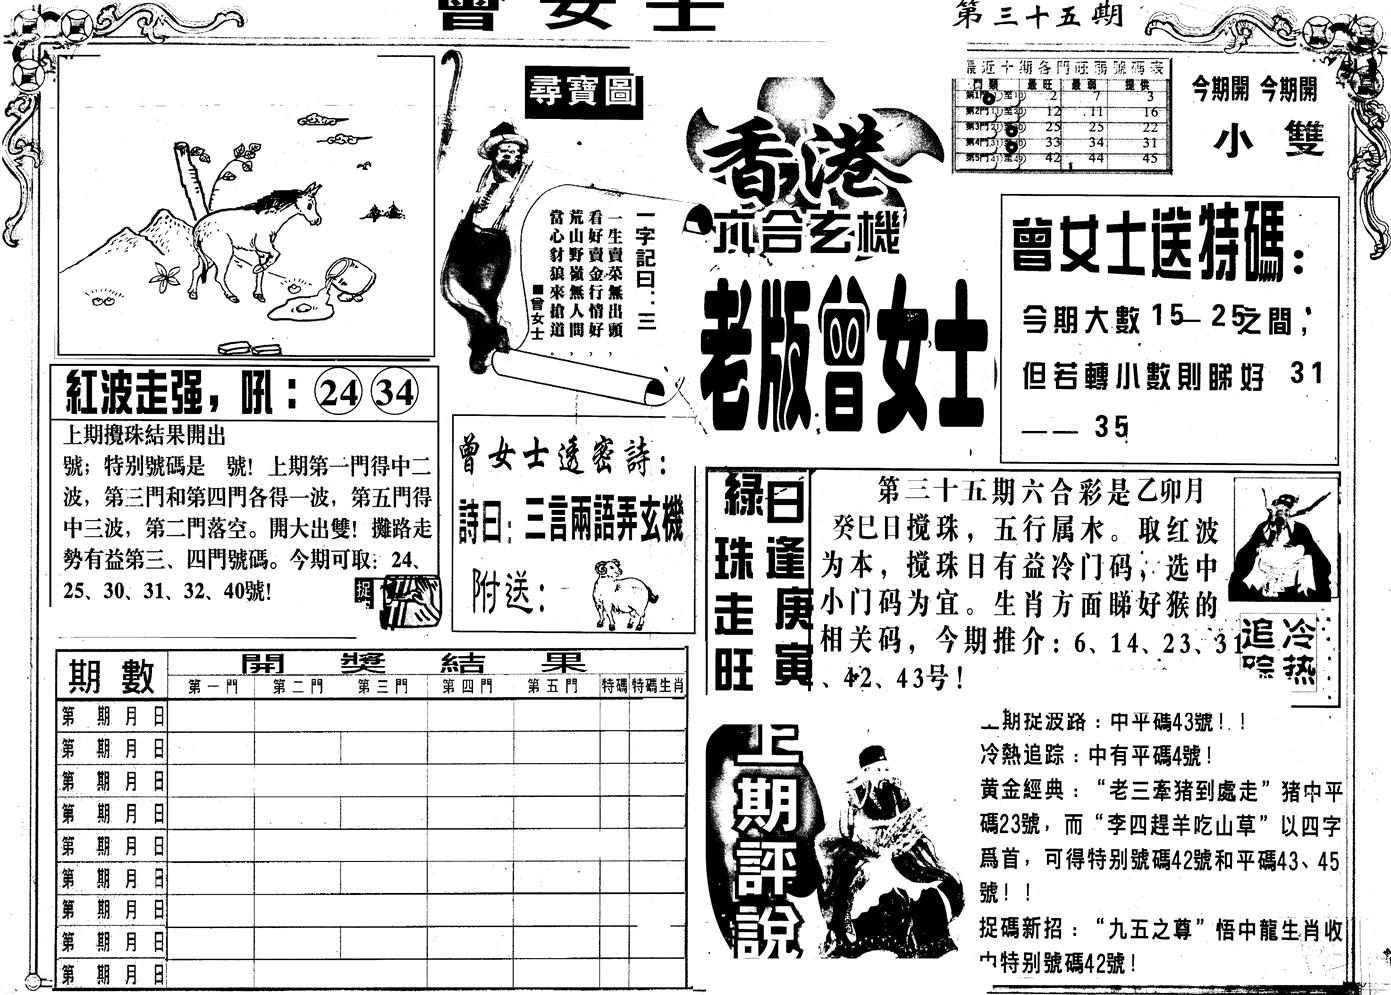 曾女士
第三十五期
尋寶圖
一字記曰：三
一生賣菜無出頭，
看好賣金行情好，
荒山野嶺無人問，
當心豺狼來搶道。
■曾女士
香港
六合玄機
老版曾女士
最近十期各門旺弱號碼表
門類 最旺 最弱 提供
第1門 2 7 3
第2門 12 11 16
第3門 25 25 22
第4門 33 34 31
第5門 42 44 45
今期開 今期開
小 雙
曾女士送特碼：
今期大數15—25之間，
但若轉小數則睇好 31
——35
紅波走强，吼：24 34
上期攪珠結果開出
號；特别號碼是 號！上期第一門得中二
波，第三門和第四門各得一波，第五門得
中三波，第二門落空。開大出雙！攤路走
勢有益第三、四門號碼。今期可取：24、
25、30、31、32、40號！
捉
曾女士透密詩：
詩曰：三言兩語弄玄機
附送：
綠珠走旺
日逢庚寅
第三十五期六合彩是乙卯月
癸巳日搅珠，五行属木。取红波
为本，搅珠日有益冷门码，选中
小门码为宜。生肖方面睇好猴的
相关码，今期推介：6、14、23、31
、42、43号！
冷热
追踪
期數 開獎結果
第一門 第二門 第三門 第四門 第五門 特碼 特碼生肖
第 期 月 日
第 期 月 日
第 期 月 日
第 期 月 日
第 期 月 日
第 期 月 日
第 期 月 日
第 期 月 日
第 期 月 日
上期評説
上期捉波路：中平碼43號！！
冷熱追踪：中有平碼4號！
黄金經典：“老三牽猪到處走”猪中平
碼23號，而“李四趕羊吃山草”以四字
爲首，可得特别號碼42號和平碼43、45
號！！
捉碼新招：“九五之尊”悟中龍生肖收
中特别號碼42號！